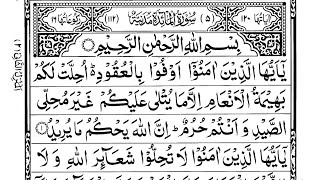 اٰیاتها ١٢٠ (٥) سُوْرَةُ الْمَآئِدَةِ مَدَنِيَّةٌ (١١٢) رکوعاتها ١٦
بِسْمِ اللّٰهِ الرَّحْمٰنِ الرَّحِيْمِ
يٰۤاَيُّهَا الَّذِيْنَ اٰمَنُوْۤا اَوْفُوْا بِالْعُقُوْدِ ؕ اُحِلَّتْ لَكُمْ
بَهِيْمَةُ الْاَنْعَامِ اِلَّا مَا يُتْلٰى عَلَيْكُمْ غَيْرَ مُحِلِّى
الصَّيْدِ وَ اَنْتُمْ حُرُمٌ ؕ اِنَّ اللّٰهَ يَحْكُمُ مَا يُرِيْدُ ۝١
يٰۤاَيُّهَا الَّذِيْنَ اٰمَنُوْا لَا تُحِلُّوْا شَعَآئِرَ اللّٰهِ وَ لَا